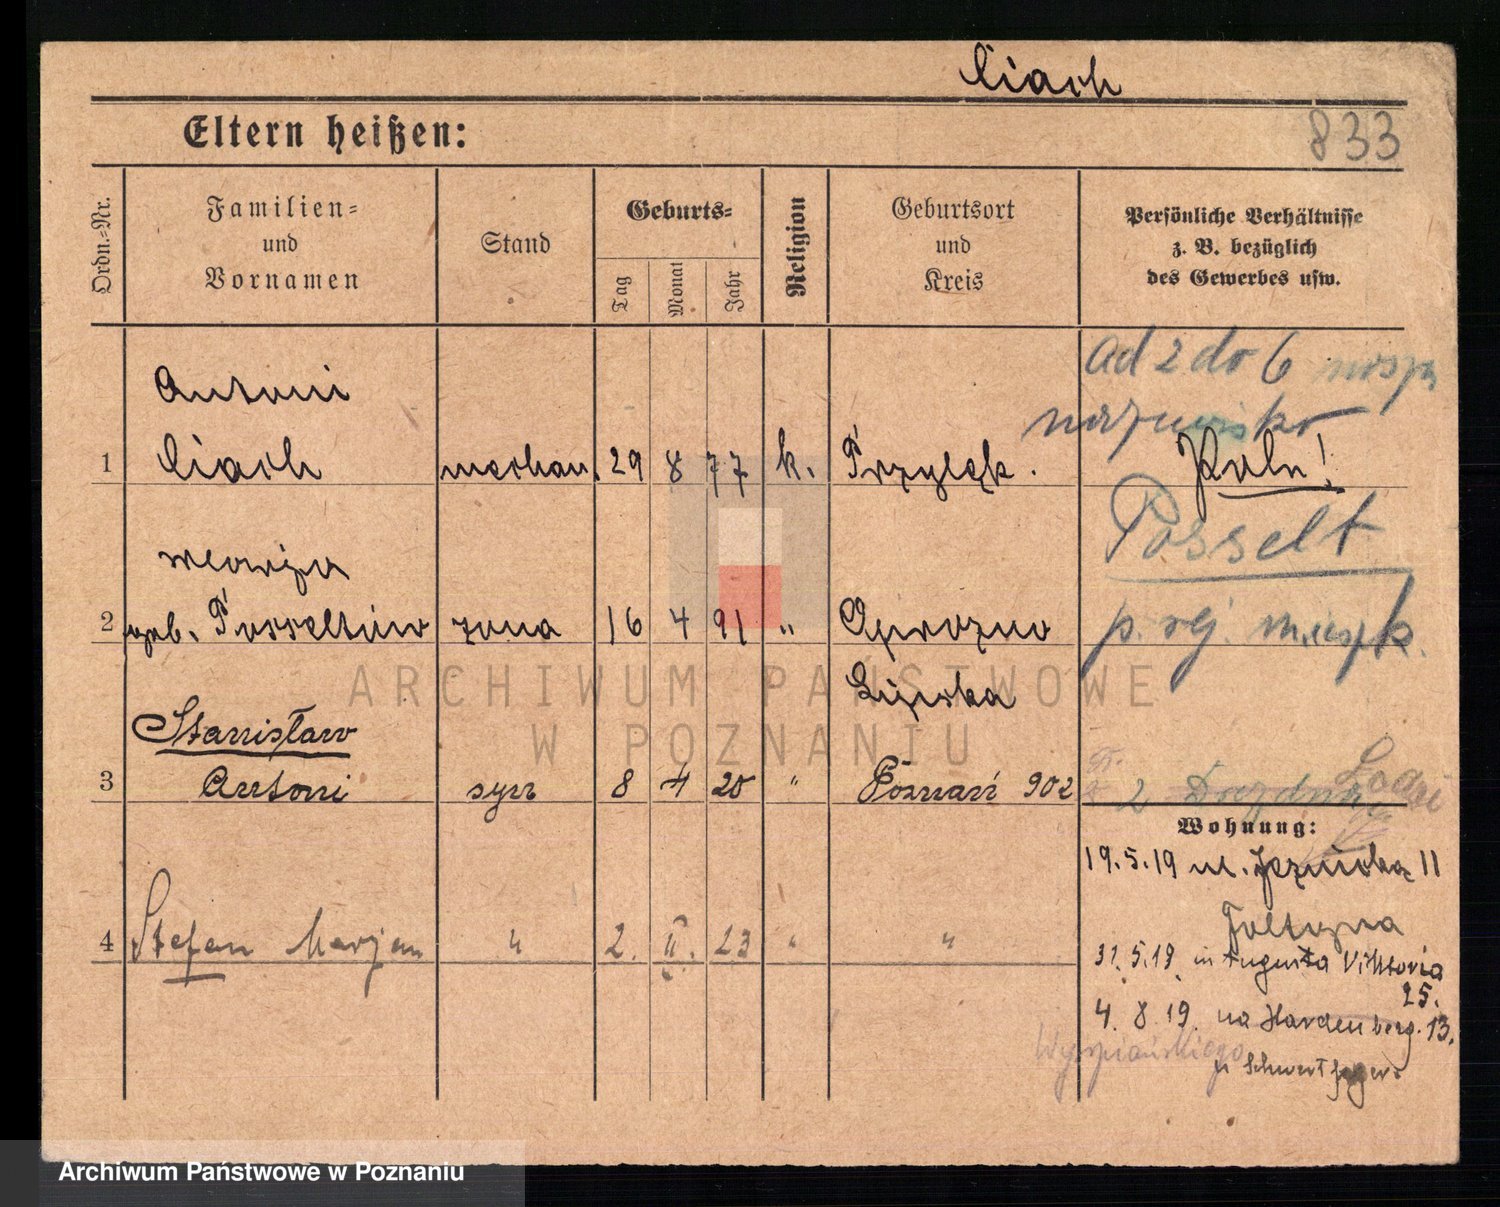 Ciach
Eltern heißen:
833
Ordn.-Nr.
Familien-
und
Vornamen
Stand
Geburts-
Tag
Monat
Jahr
Religion
Geburtsort
und
Kreis
Persönliche Verhältnisse
z. B. bezüglich
des Gewerbes usw.
od 2 do 6 noszą
nazwisko
Antoni
1 Ciach mechan. 29 8 77 k. Przylęk. Poln!
Posselt
Marja
2 geb. Posseltów żona 16 4 91 " Oprozno
p. rej. mieszk.
Stanisław
3 Antoni syn 8 4 20 " Poznań 902
Wohnung:
19.5.19 ul. 11
4 Stefan Marjan " 2. II. 23 " "
31.5.19 in Augusta Viktoria
25.
4. 8. 19. na Hardenberg. 13.
Wyspiańskiego
u Schwertfeger
ARCHIWUM PAŃSTWOWE
W POZNANIU
Archiwum Państwowe w Poznaniu